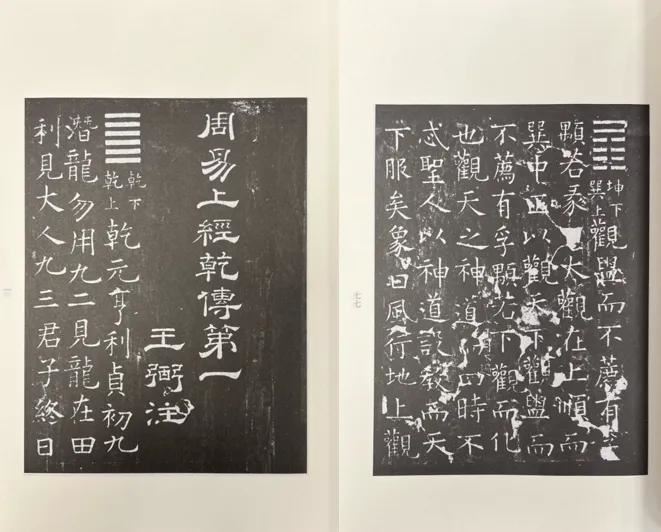 周易上經乾傳第一
王弼注
乾下
乾上
乾元亨利貞初九
潛龍勿用九二見龍在田
利見大人九三君子終日
坤下
巽上
觀盥而不薦有孚
顒若彖大觀在上順而
巽中正以觀天下觀盥而
不薦有孚顒若下觀而化
也觀天之神道而四時不
忒聖人以神道設教而天
下服矣象曰風行地上觀
七七